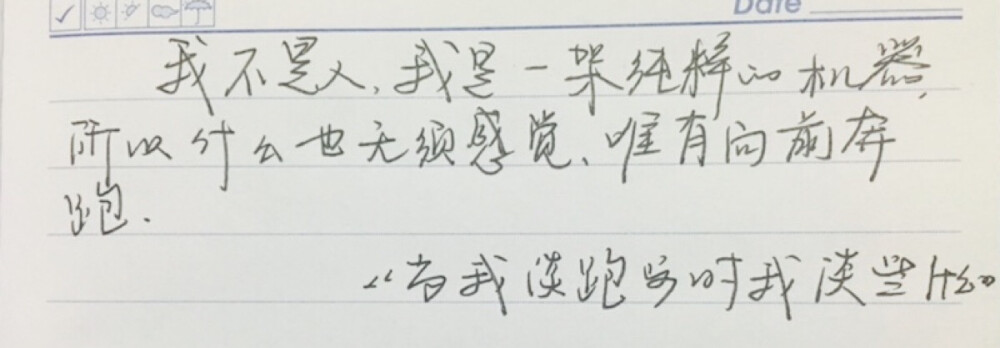 Date
我不是人,我是一架纯粹的机器,
所以什么也无须感觉、唯有向前奔
跑.
“当我谈跑步时我谈些什么”